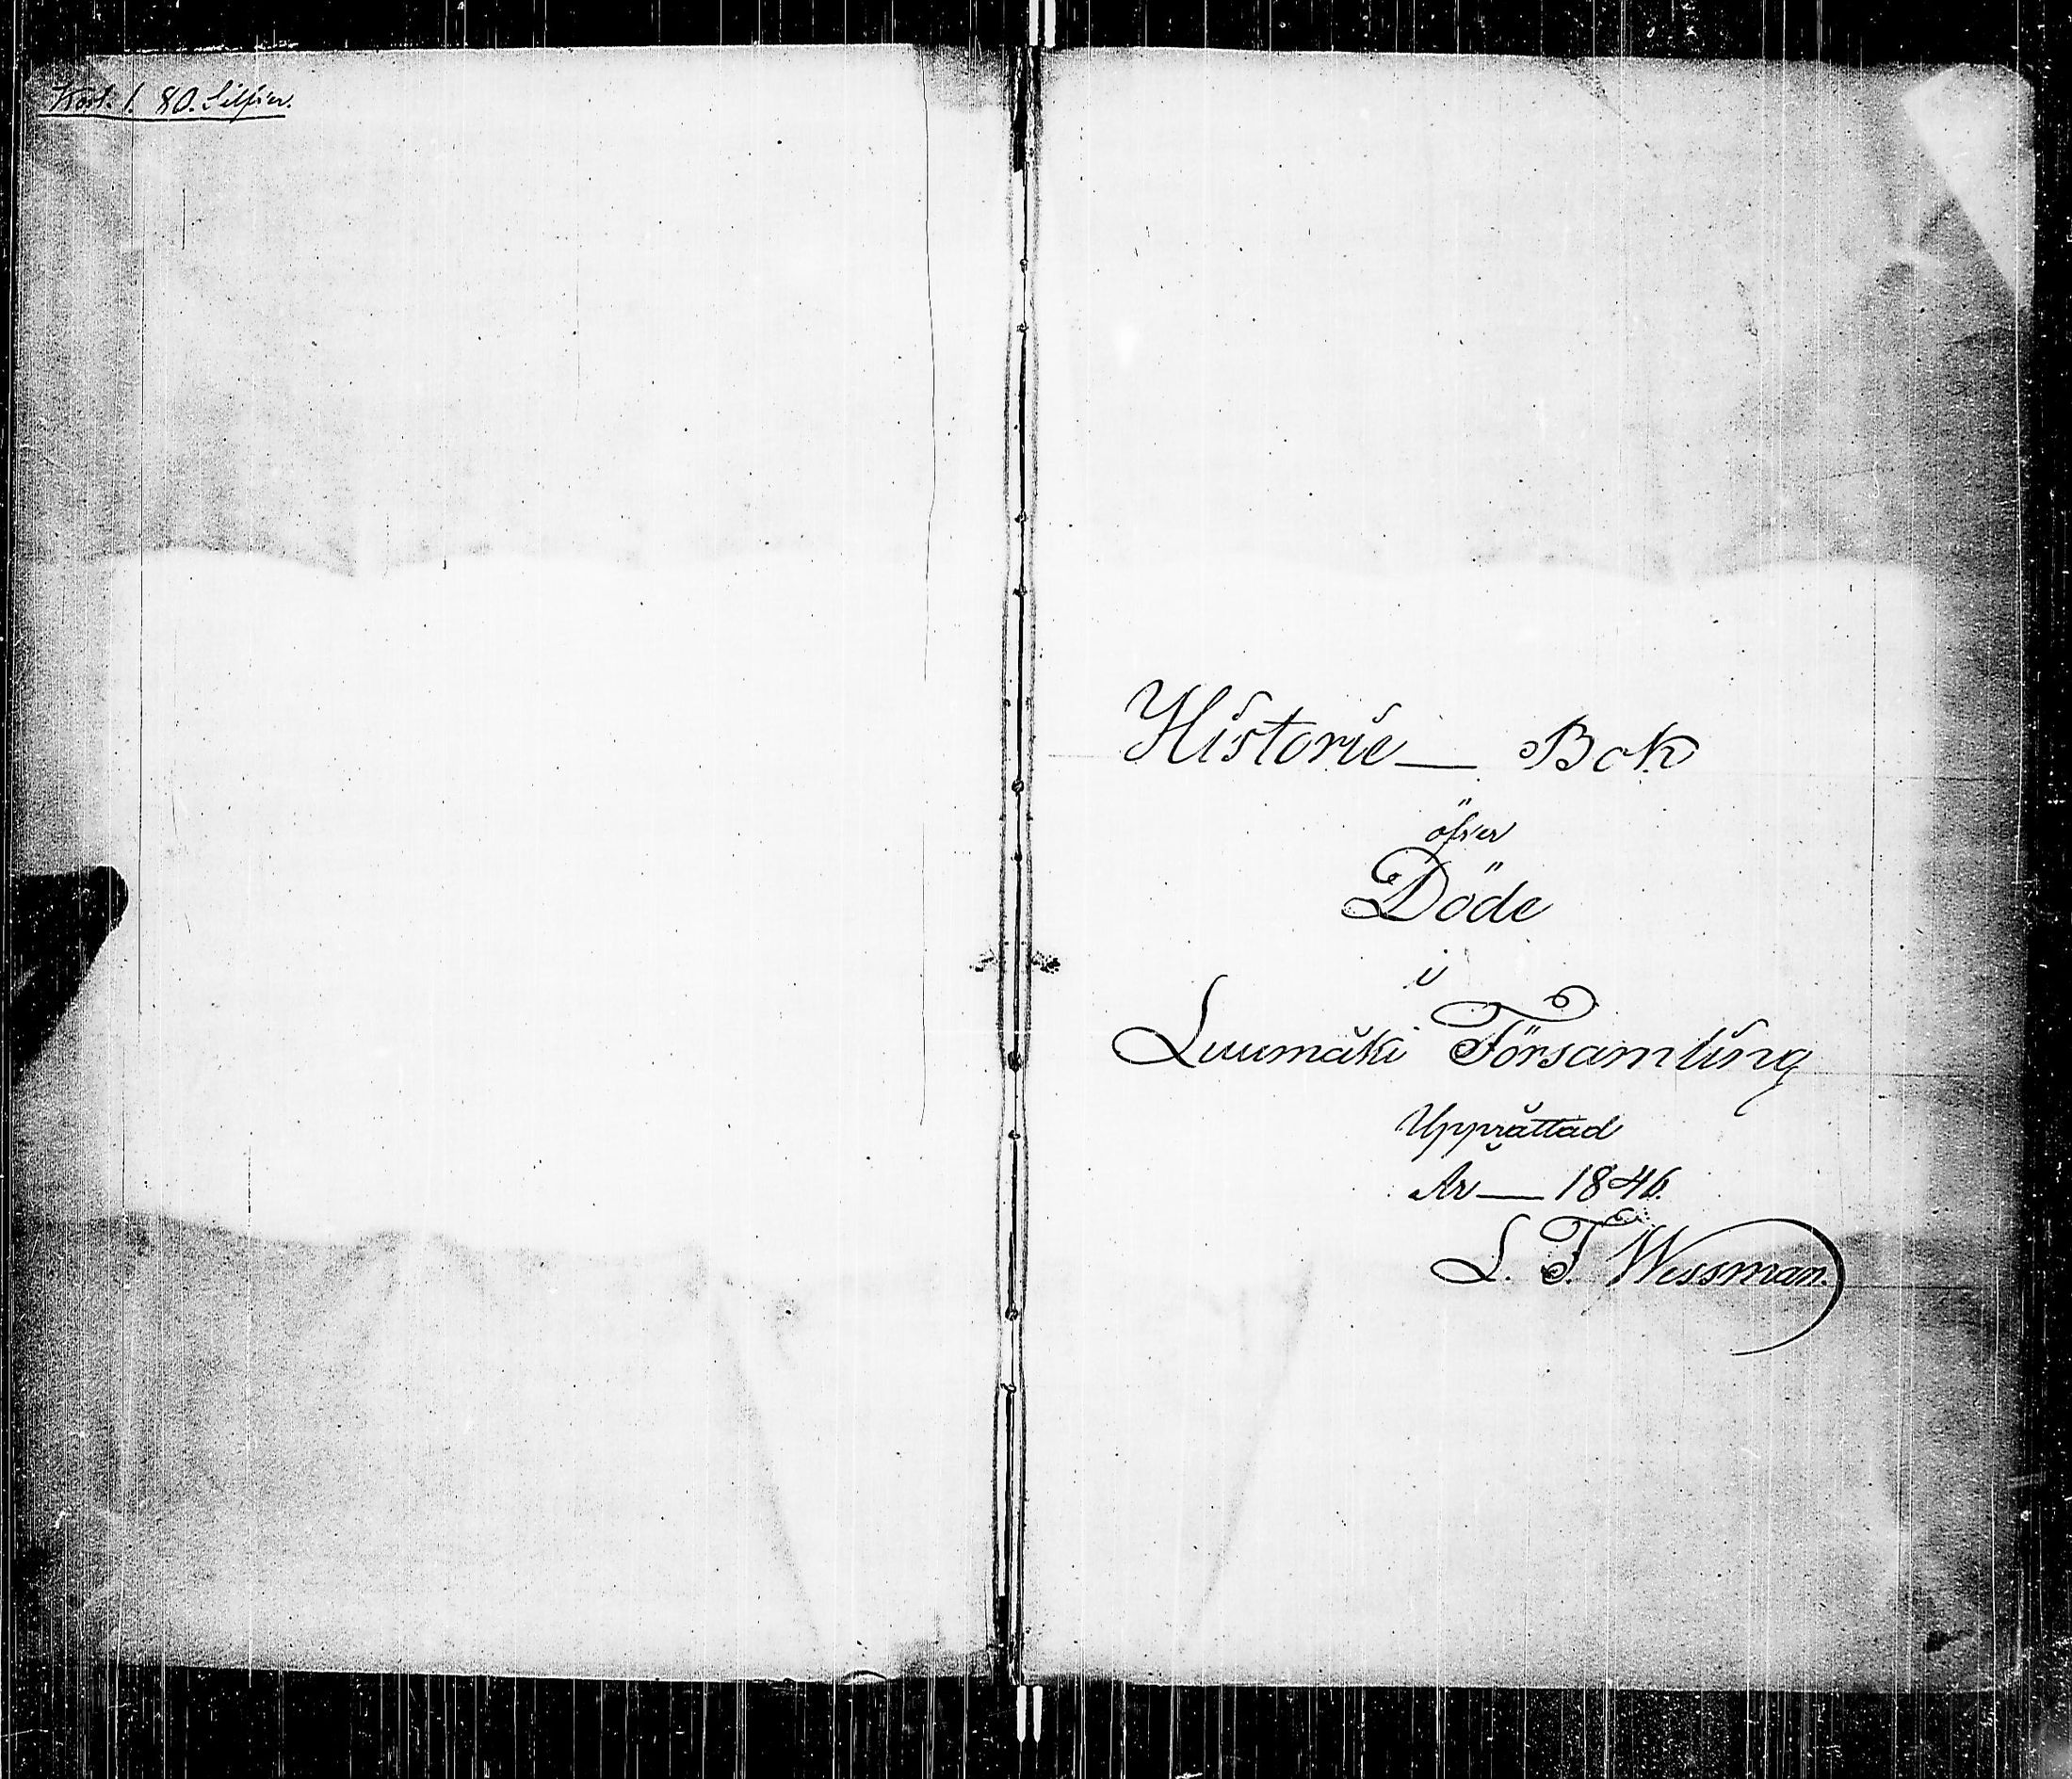 Kost. 1. 80. Silfver.
Historie — Bok
öfver
Döde
i
Luumäki Församling
Upprättad
År — 1846.
L. F. Wessman.